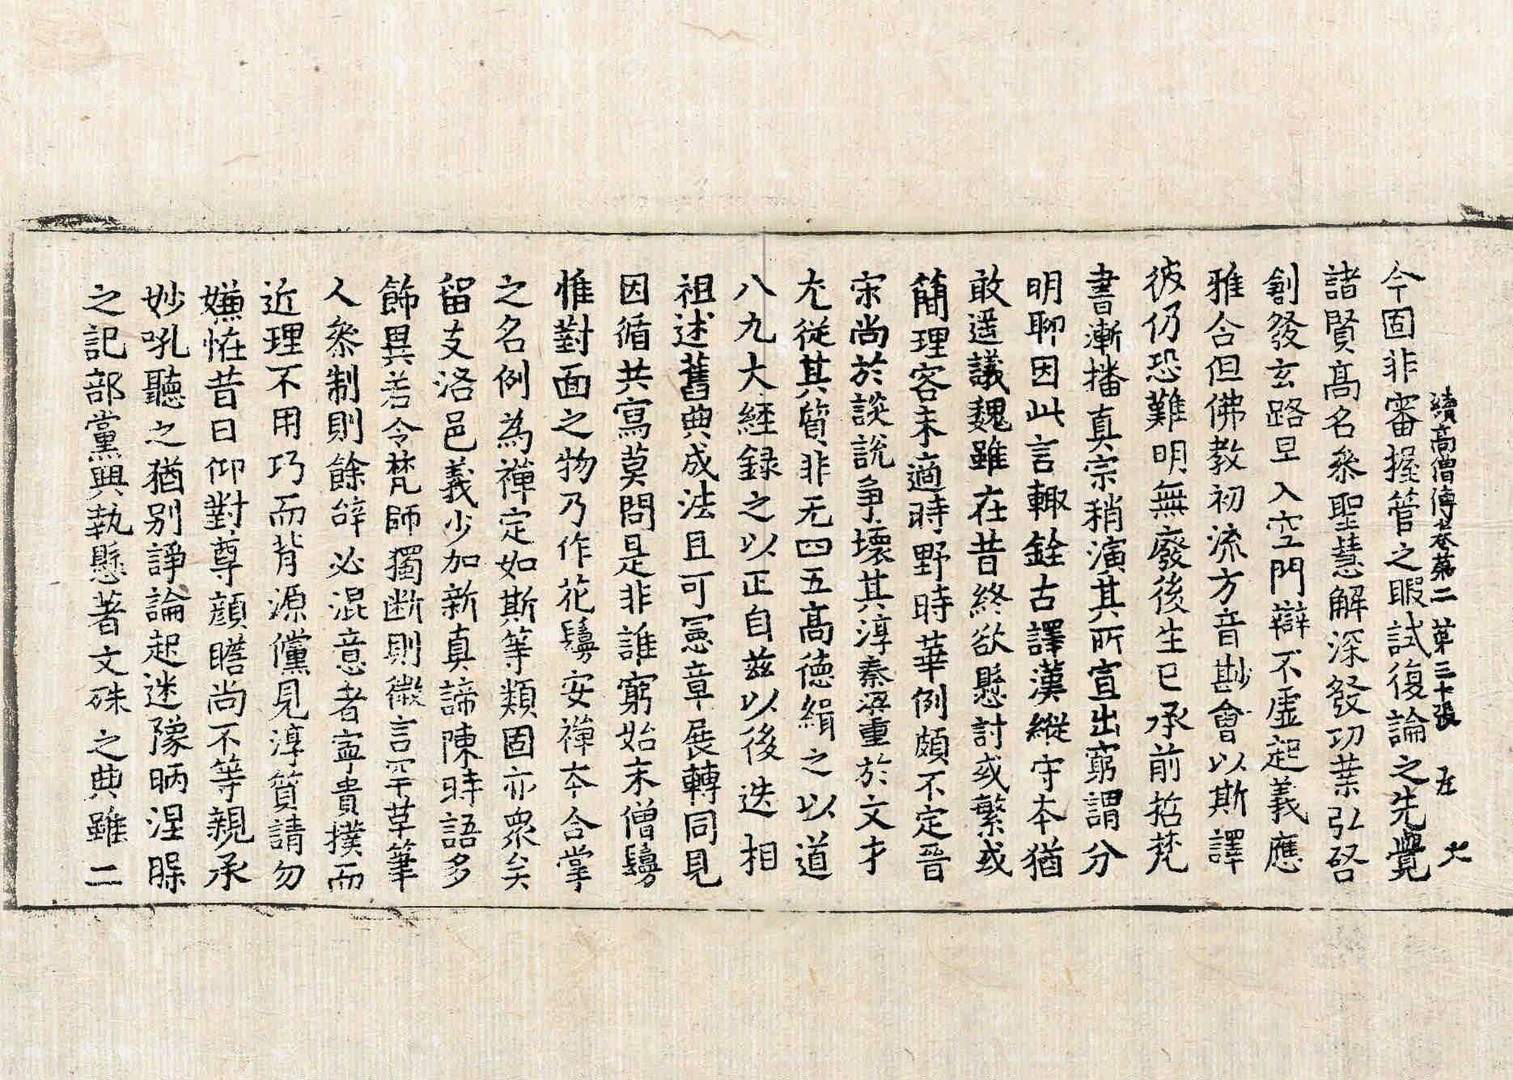 續高僧傳卷第二　第三十張　左
今固非審握管之暇試復論之先覺
諸賢高名參聖慧解深發功業弘啓
創發玄路早入空門辯不虛起義應
雅合但佛教初流方音尠會以斯譯
彼仍恐難明無廢後生已承前哲梵
書漸播真宗稍演其所宣出窮謂分
明聊因此言輙銓古譯漢縱守本猶
敢遥議魏雖在昔終欲懸討或繁或
簡理容未適時野時華例頗不定晉
宋尚於談說争壞其淳秦涼重於文才
尤從其質非无四五高德緝之以道
八九大經録之以正自兹以後迭相
祖述舊典成法且可憲章展轉同見
因循共寫莫問是非誰窮始末僧鬘
惟對面之物乃作花鬘安禪本合掌
之名例為禪定如斯等類固亦衆矣
留支洛邑義少加新真諦陳時語多
飾異若令梵師獨断則微言罕革筆
人參制則餘辞必混意者寧貴撲而
近理不用巧而背源儻見淳質請勿
嫌恠昔日仰對尊顔瞻尚不等親承
妙吼聽之猶别諍論起迷豫昞涅
之記部黨興執懸著文殊之典雖二